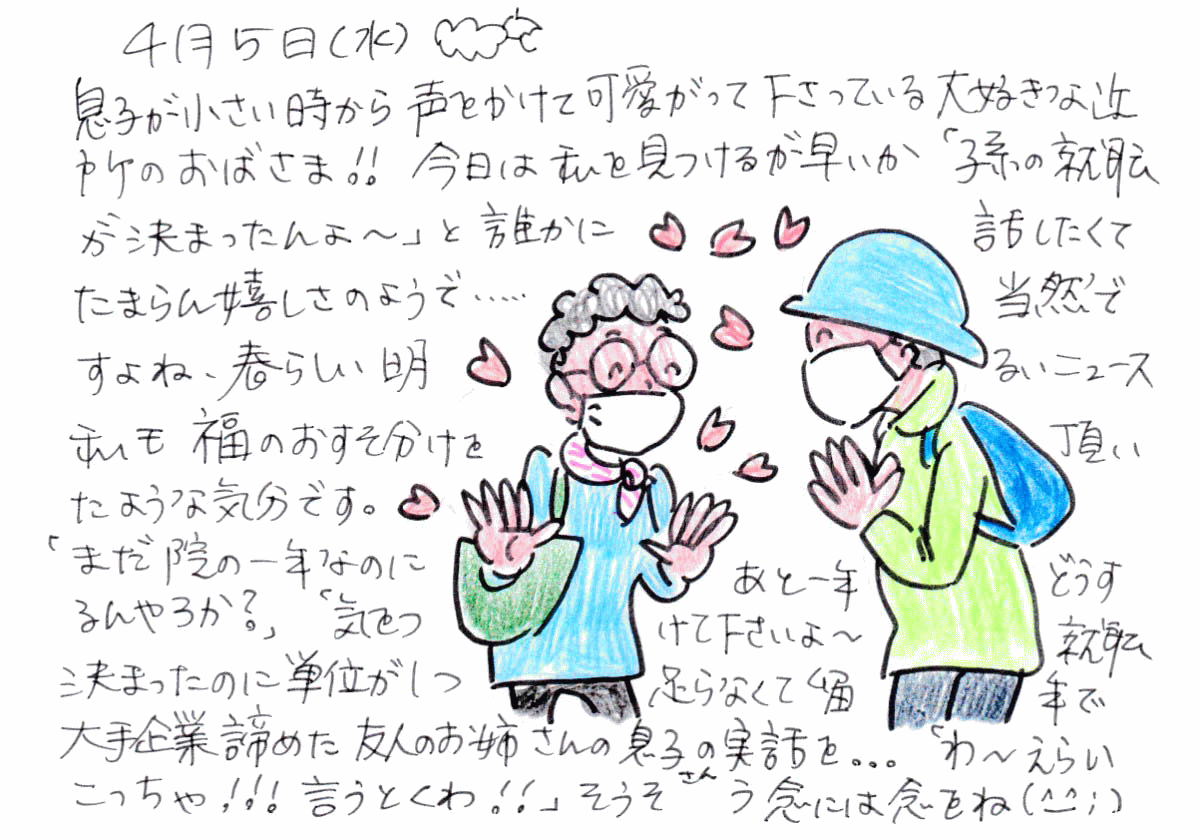 4月5日(水)
息子が小さい時から声をかけて可愛がって下さっている大好きな近
所のおばさま!! 今日は私を見つけるが早いか「孫の就転
が決まったんよ〜」と誰かに話したくて
たまらん嬉しさのようで……当然で
すよね、春らしい明るいニュース
私も福のおすそ分けを頂い
たような気分です。
「まだ院の一年なのにあと一年どうす
るんやろか?」「気をつけて下さいよ〜就転
決まったのに単位が1つ足らなくて留年で
大手企業諦めた友人のお姉さんの息子さんの実話を...「わ〜えらい
こっちゃ!!!言うとくわ!!」そうそう念には念をね(^^;)